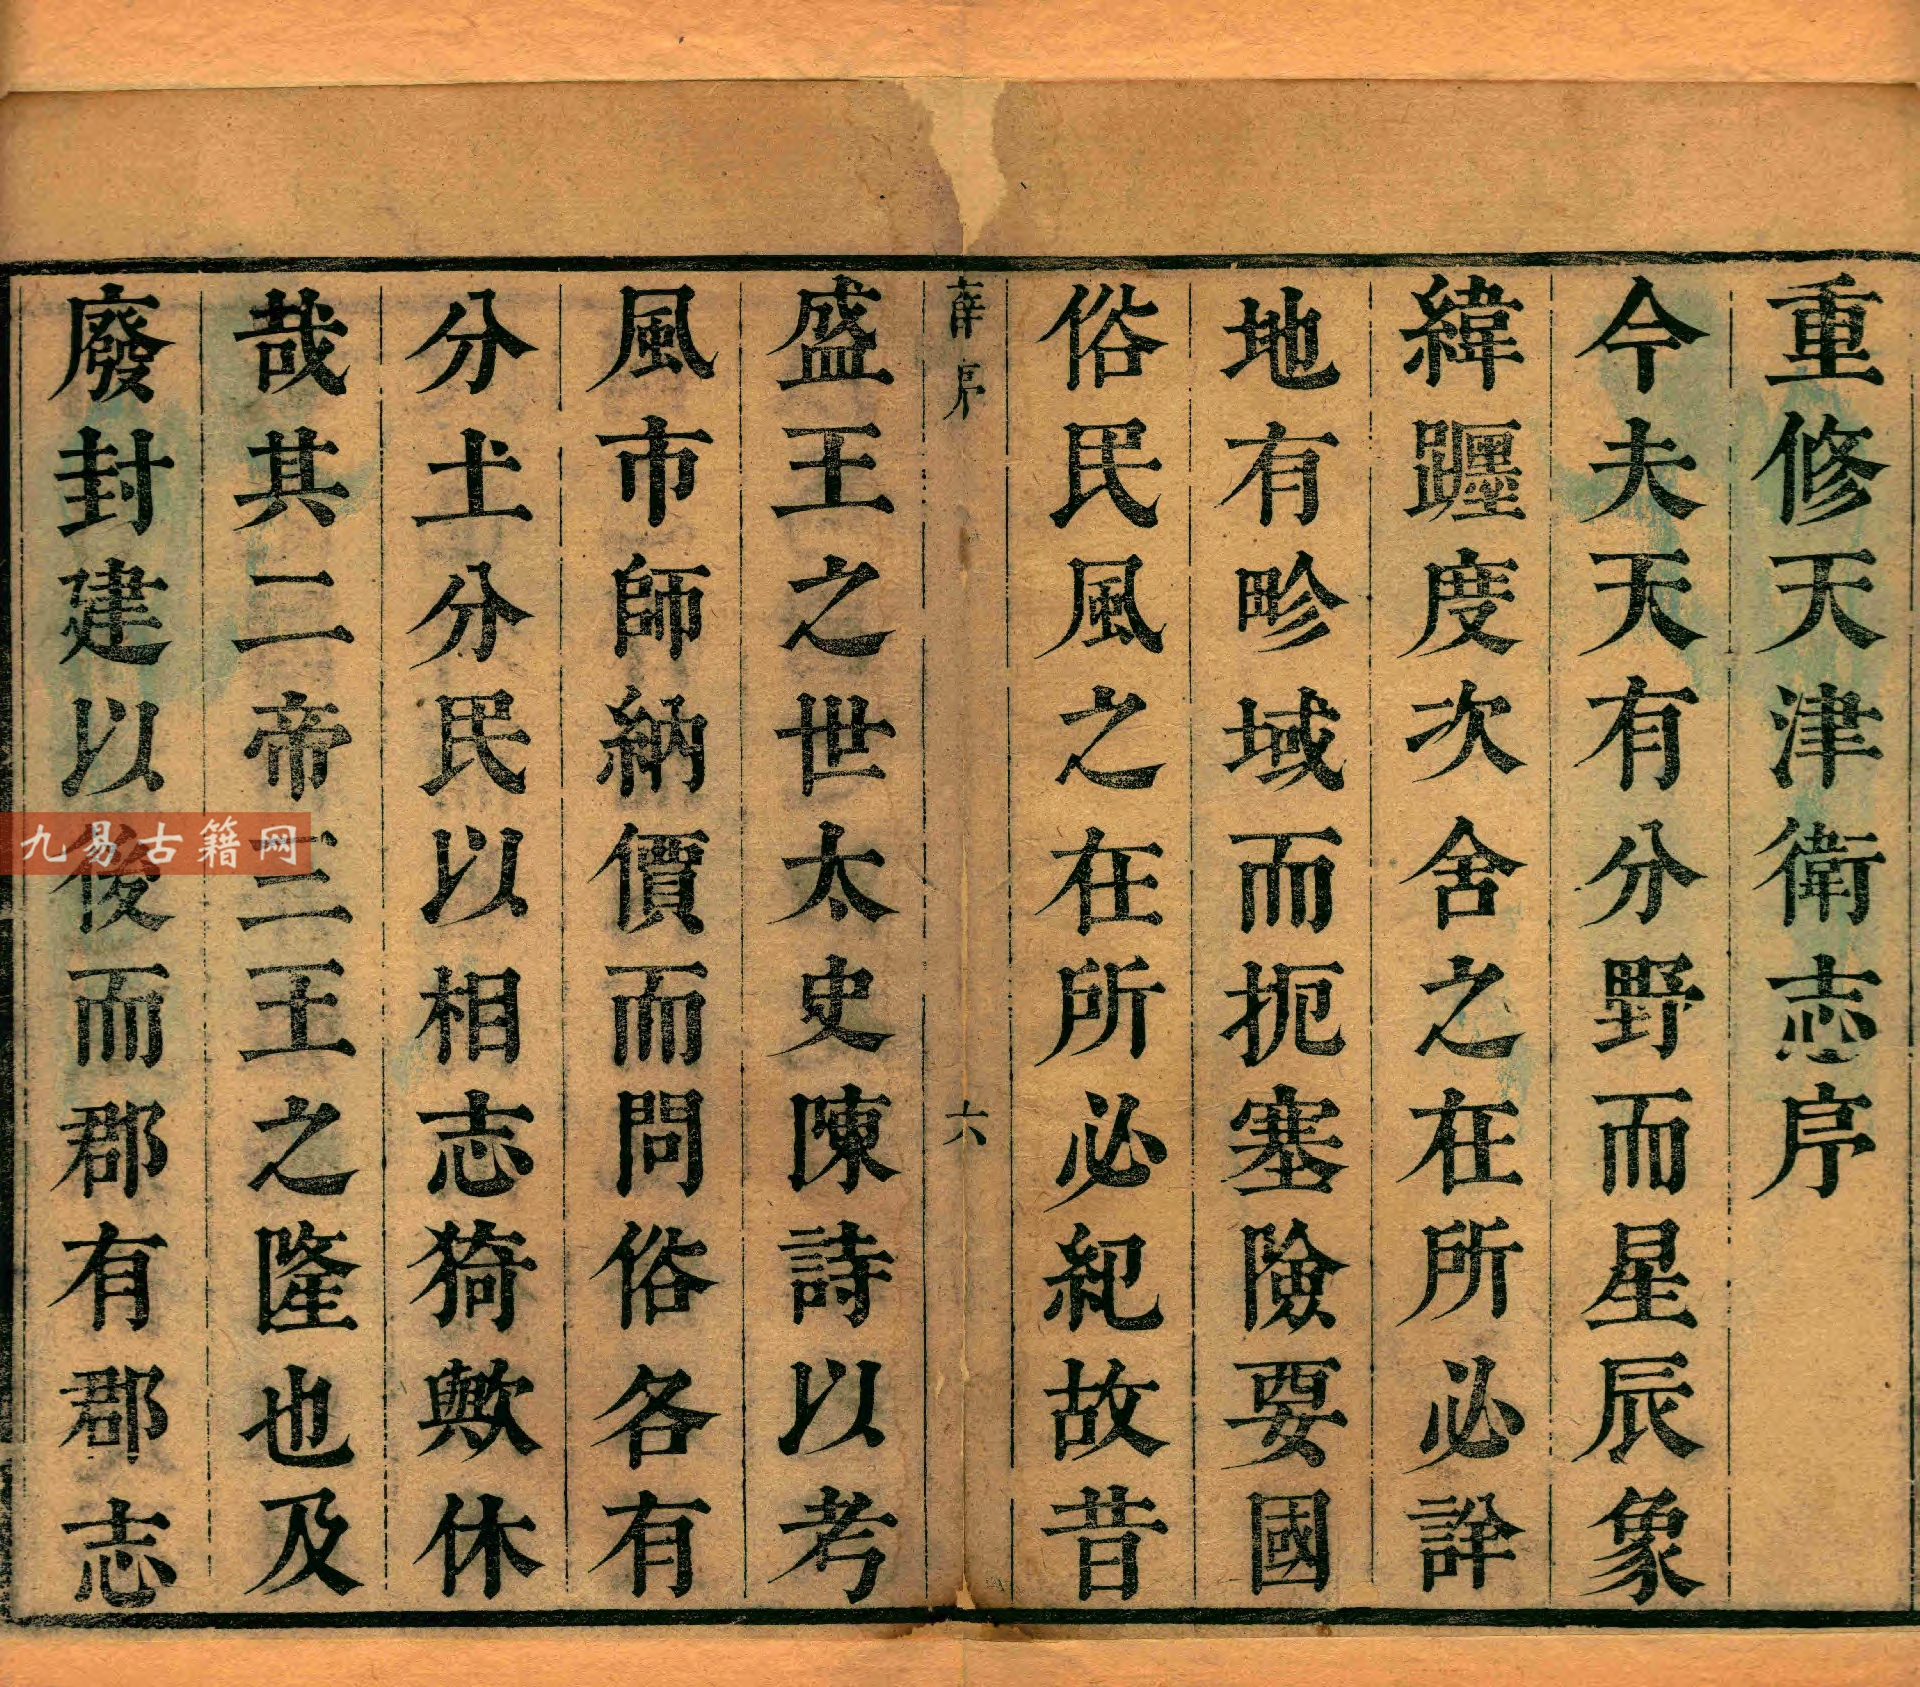 重修天津衛志序
今夫天有分野而星辰象
緯躔度次舍之在所必詳
地有畛域而扼塞險要國
俗民風之在所必紀故昔
薛序
六
盛王之世太史陳詩以考
風市師納價而問俗各有
分土分民以相志猗歟休
哉其二帝三王之隆也及
廢封建以後而郡有郡志
九易古籍网